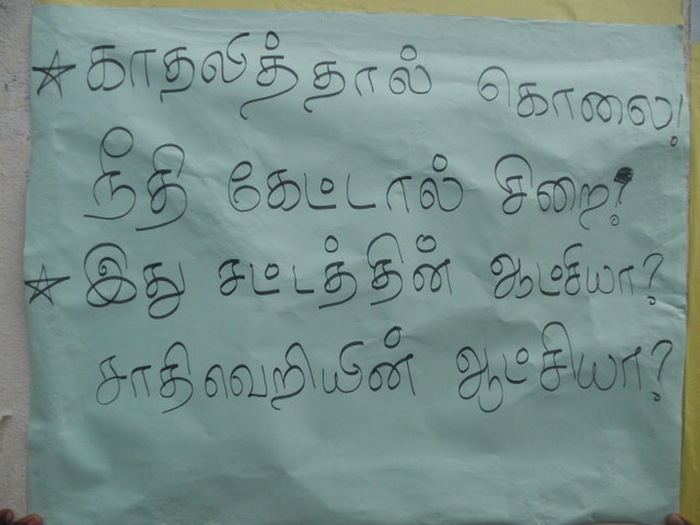 ☆ காதலித்தால் கொலை!
நீதி கேட்டால் சிறை!
☆ இது சட்டத்தின் ஆட்சியா?
சாதிவெறியின் ஆட்சியா?